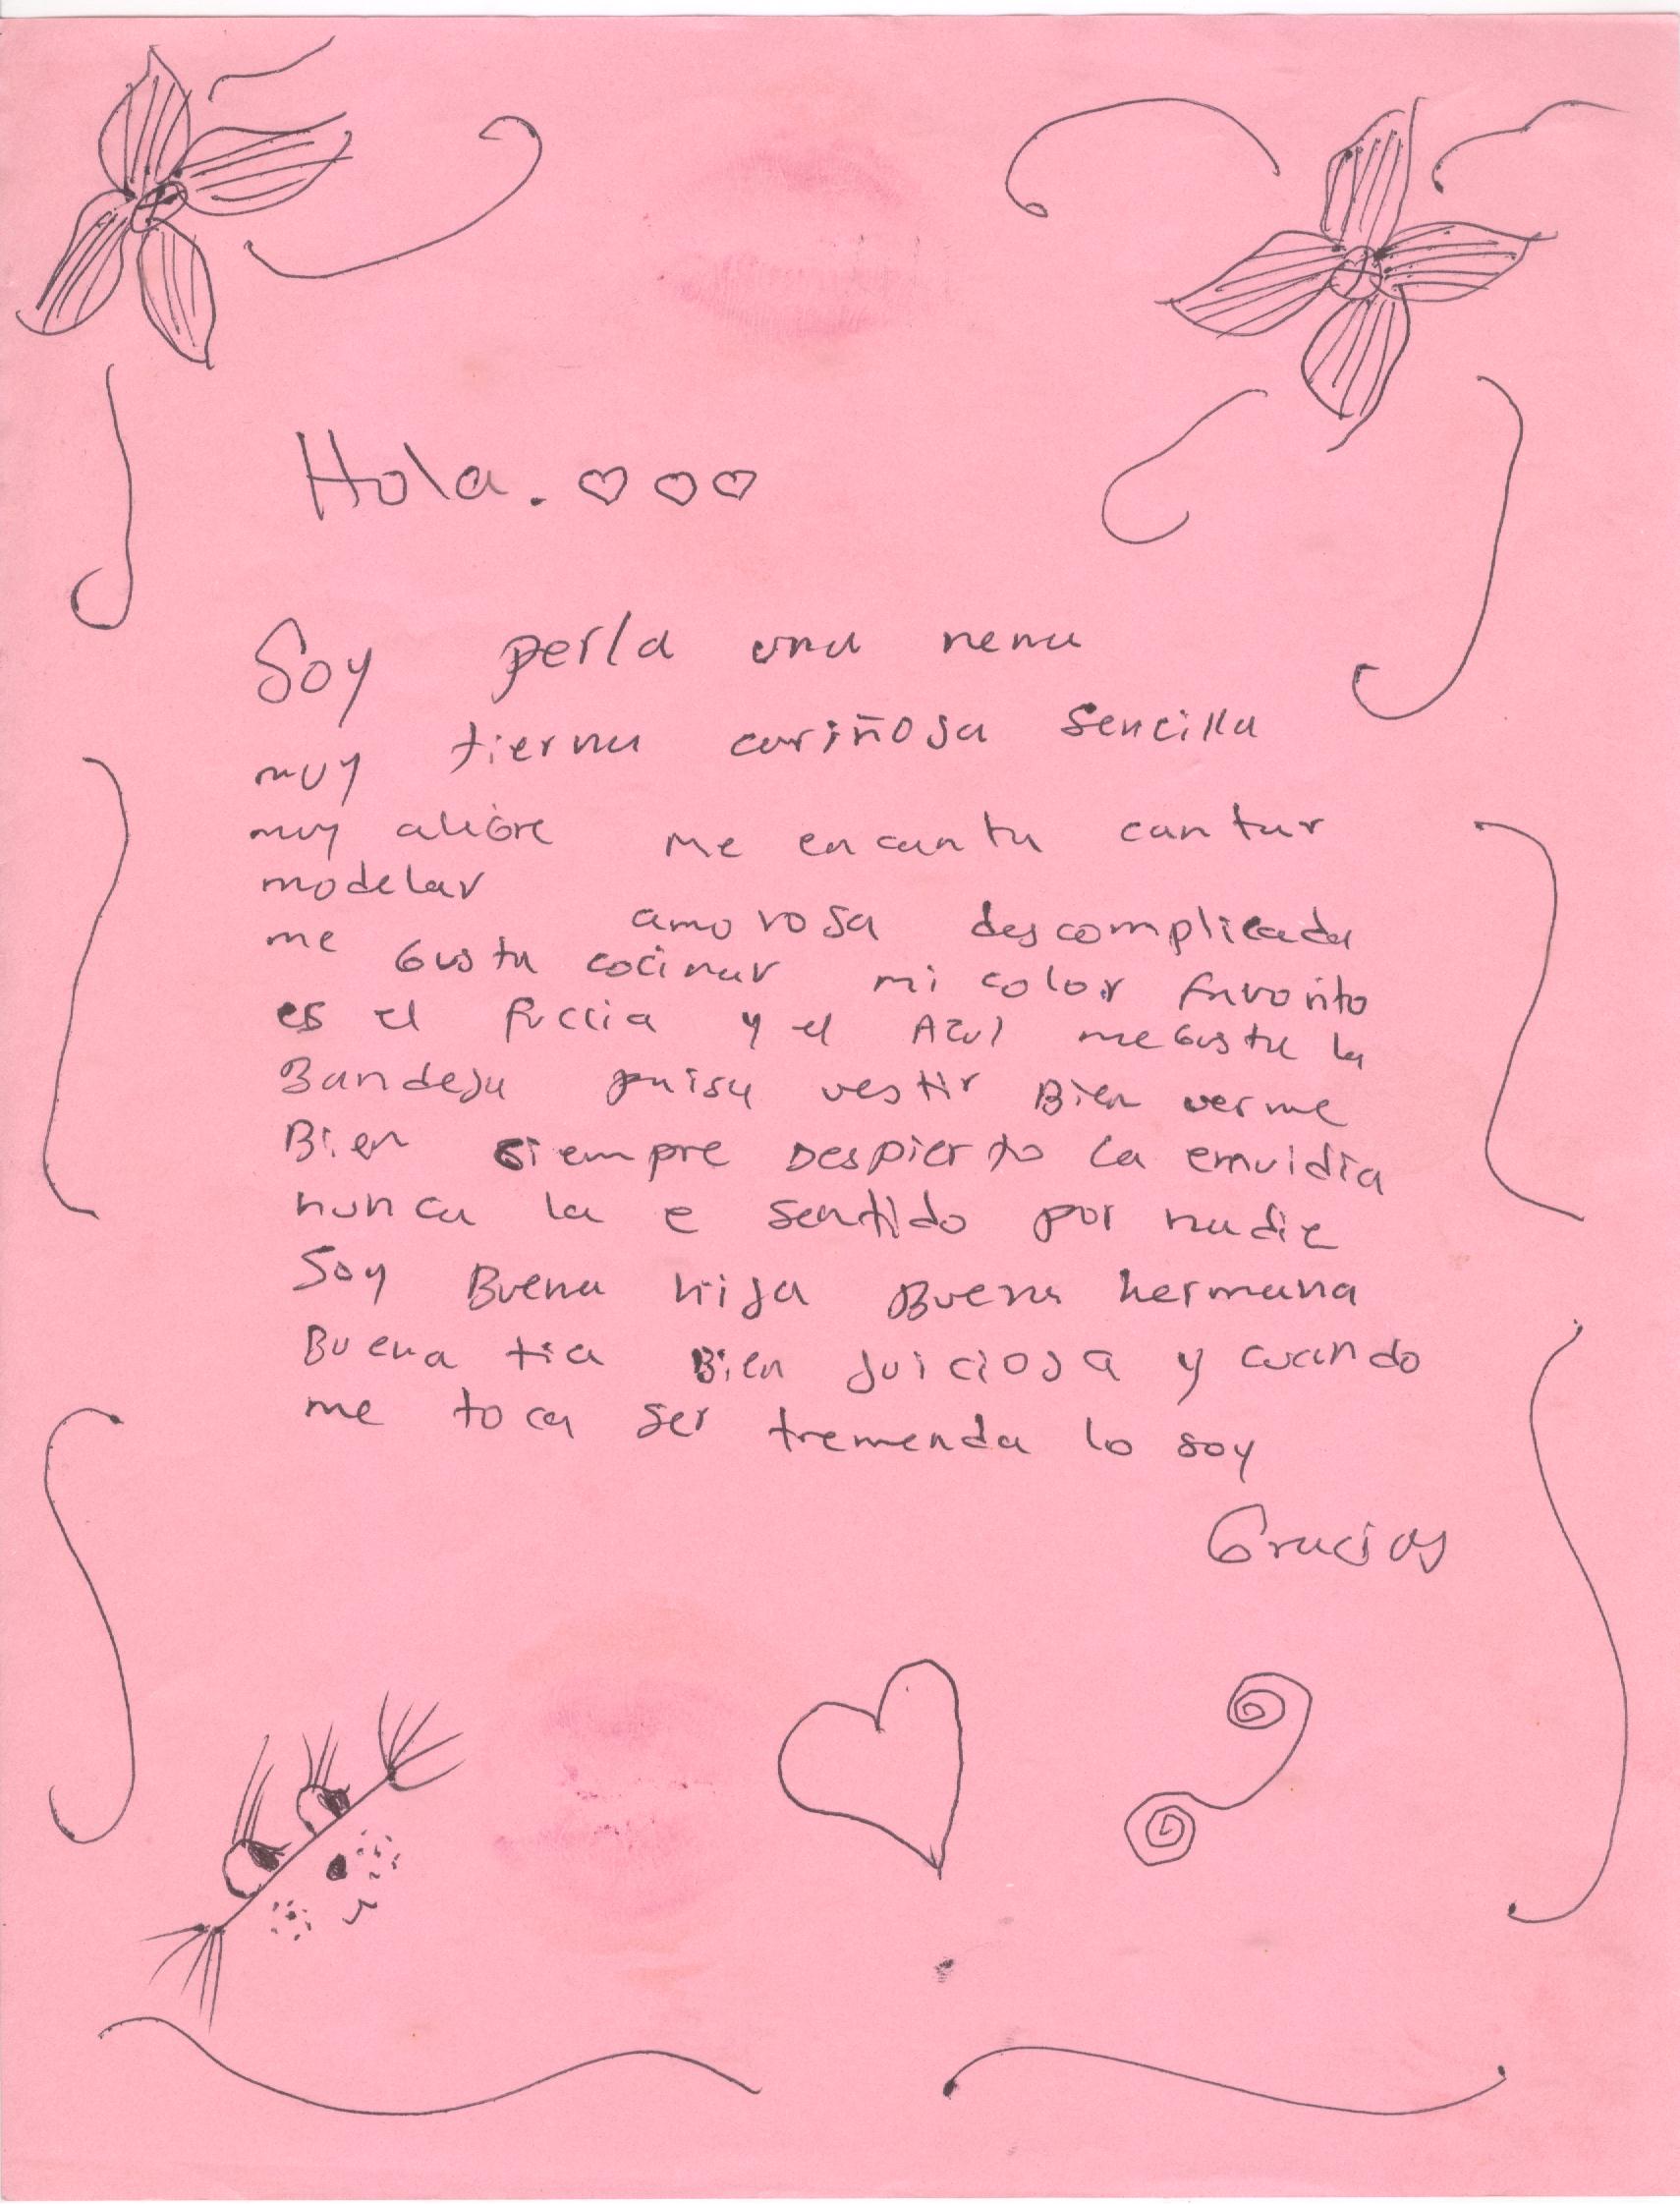 Hola.
Soy perla una nena
muy tierna cariñosa sencilla
muy alegre me encanta cantar
modelar amorosa descomplicada
me Gusta cocinar mi color favorito
es el fuccia y el Azul me Gusta la
Bandeja paisa vestir Bien verme
Bien siempre Despierto la emvidia
nunca la e sentido por nadie
Soy Buena hija Buena hermana
Buena tia Bien juiciosa y cuando
me toca ser tremenda lo soy
Gracias